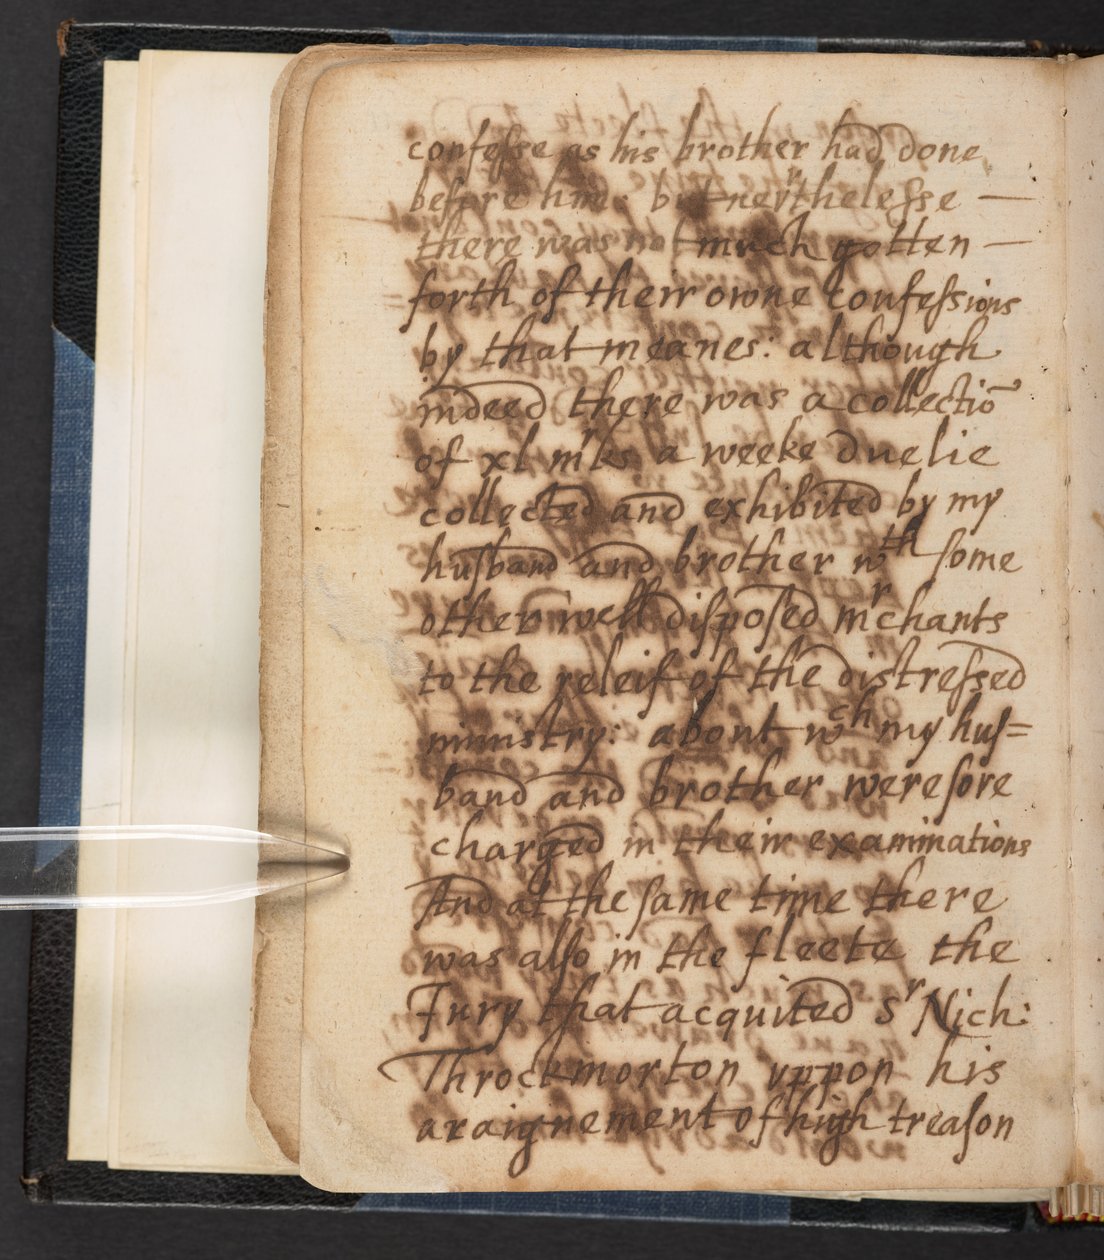 confesse as his brother had done
before him: but nevrthelesse —
there was not much gotten —
forth of their owne confessions
by that meanes: although
indeed there was a collectiō
of xl mrks a weeke duelie
collected and exhibited by my
husband and brother wth some
other well disposed mrchants
to the releif of the distressed
ministry: about wch my hus=
band and brother were sore
charged in their examinations
And at the same time there
was also in the fleete the
Jury that acquited Sr Nich:
Throckmorton vppon his
araignement of high treason